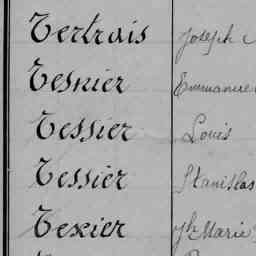 Tertrais Joseph
Tesnier Emmanuel
Tessier Louis
Tessier Stanislas
Texier Jh Marie